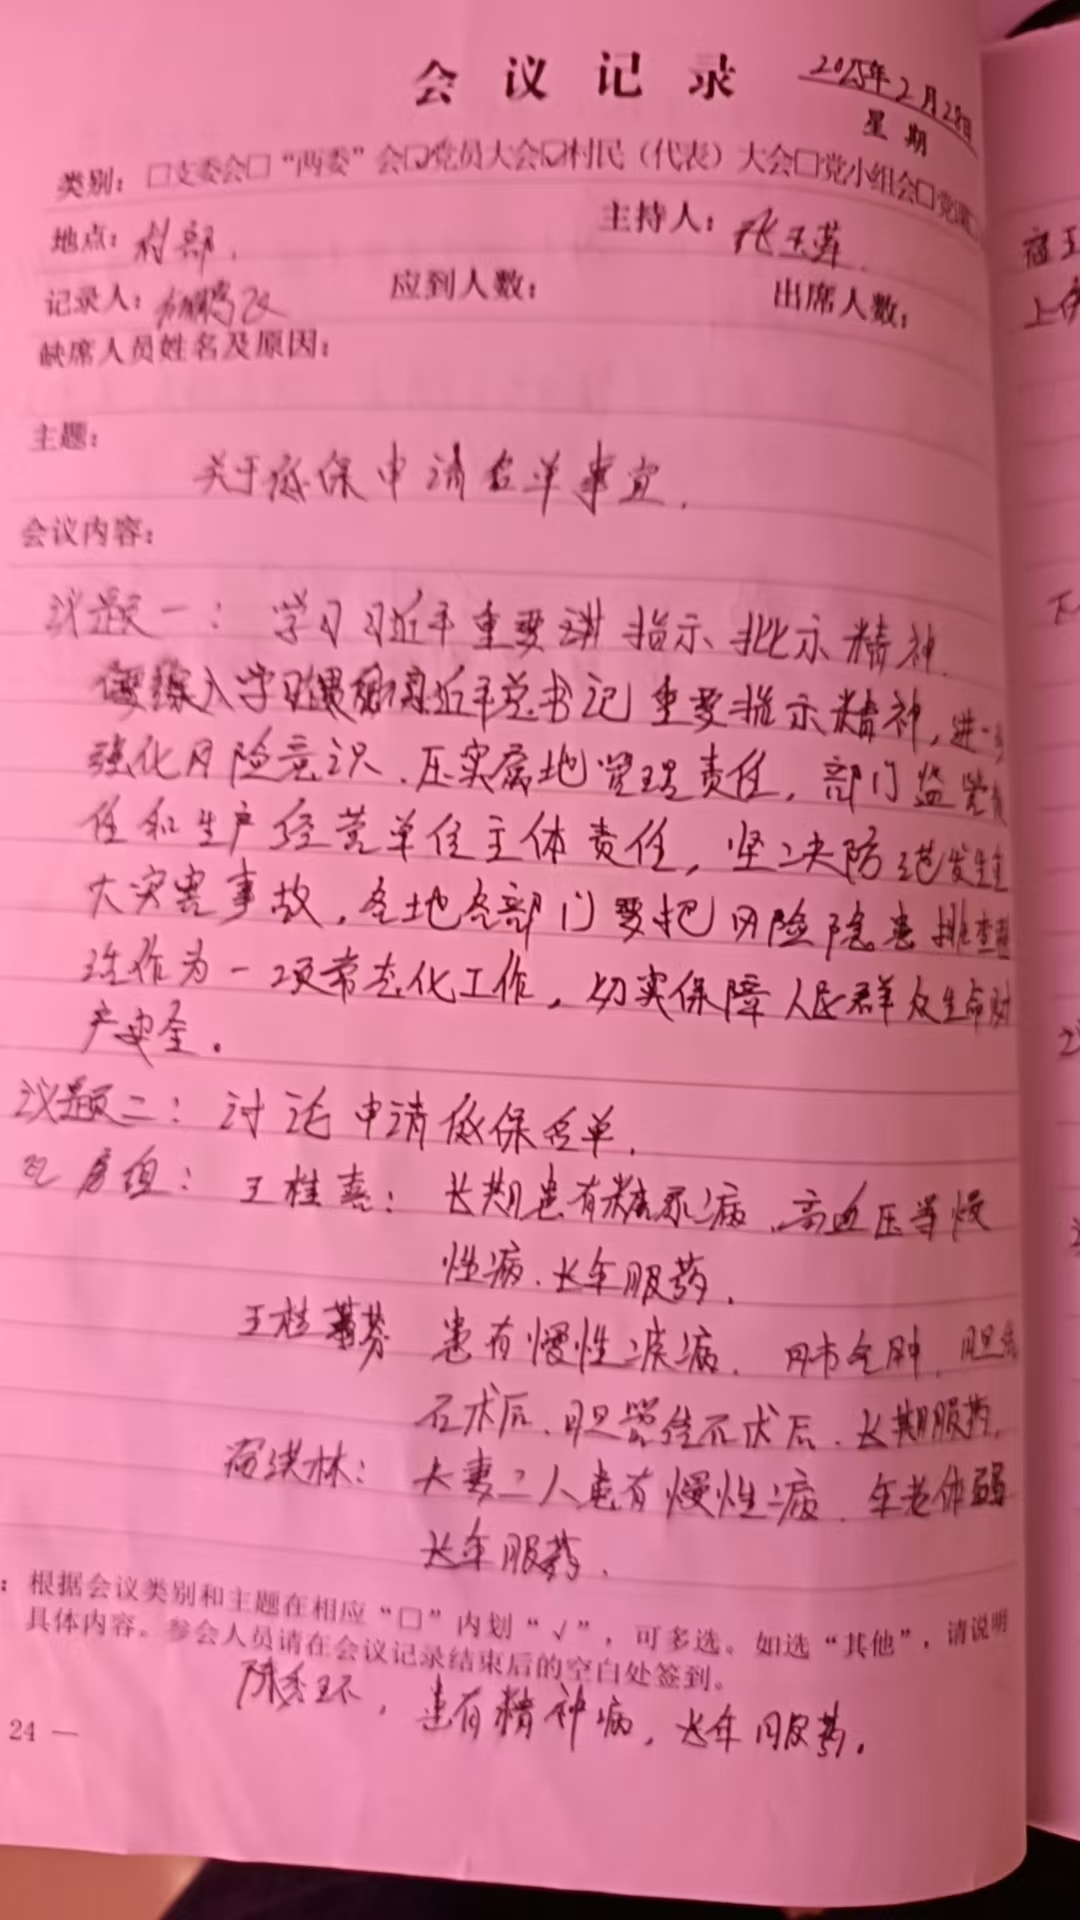 会议记录
2025年2月28日
星期
类别：□支委会□“两委”会☑党员大会☑村民（代表）大会□党小组会□党课
地点：村部.
主持人：张玉萍
记录人：
应到人数：
出席人数：
缺席人员姓名及原因：
主题：
关于低保申请名单事宜.
会议内容：
议题一：学习习近平重要讲 指示批示精神.
深入学习贯彻习近平总书记重要指示精神，进一步
强化风险意识、压实属地管理责任，部门监管责
任和生产经营单位主体责任，坚决防范发生重
大灾害事故，各地各部门要把风险隐患排查整
治作为一项常态化工作，切实保障人民群众生命财
产安全。
议题二：讨论申请低保名单.
房组：王桂喜：长期患有糖尿病、高血压等慢
性病、长年服药.
王桂芬 患有慢性疾病、肺气肿、胆结
石术后、胆管结石术后、长期服药.
宿洪林：夫妻二人患有慢性病、年老体弱
长年服药.
：根据会议类别和主题在相应“□”内划“√”，可多选。如选“其他”，请说明
具体内容。参会人员请在会议记录结束后的空白处签到。
陈秀环，患有精神病，长年服药。
24 —
宿王
上